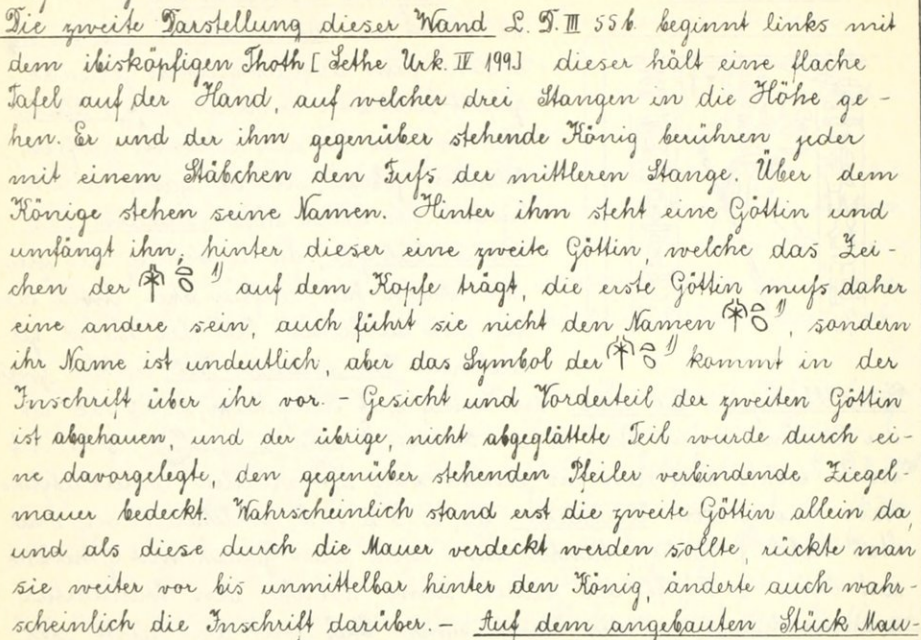 Die zweite Darstellung dieser Wand L. D. III 55 b. beginnt links mit
dem ibisköpfigen Thoth [Sethe Urk. IV 199] dieser hält eine flache
Tafel auf der Hand, auf welcher drei Stangen in die Höhe ge-
hen. Er und der ihm gegenüber stehende König berühren jeder
mit einem Stäbchen den Fufs der mittleren Stange. Über dem
Könige stehen seine Namen. Hinter ihm steht eine Göttin und
umfängt ihn, hinter dieser eine zweite Göttin, welche das Zei-
chen der 1) auf dem Kopfe trägt, die erste Göttin mufs daher
eine andere sein, auch führt sie nicht den Namen 1), sondern
ihr Name ist undeutlich, aber das Symbol der 1) kommt in der
Inschrift über ihr vor. - Gesicht und Vorderteil der zweiten Göttin
ist abgehauen, und der übrige, nicht abgeglättete Teil wurde durch ei-
ne davorgelegte, den gegenüber stehenden Pfeiler verbindende Ziegel-
mauer bedeckt. Wahrscheinlich stand erst die zweite Göttin allein da,
und als diese durch die Mauer verdeckt werden sollte, rückte man
sie weiter vor bis unmittelbar hinter den König, änderte auch wahr-
scheinlich die Inschrift darüber. - Auf dem angebauten Stück Mau-